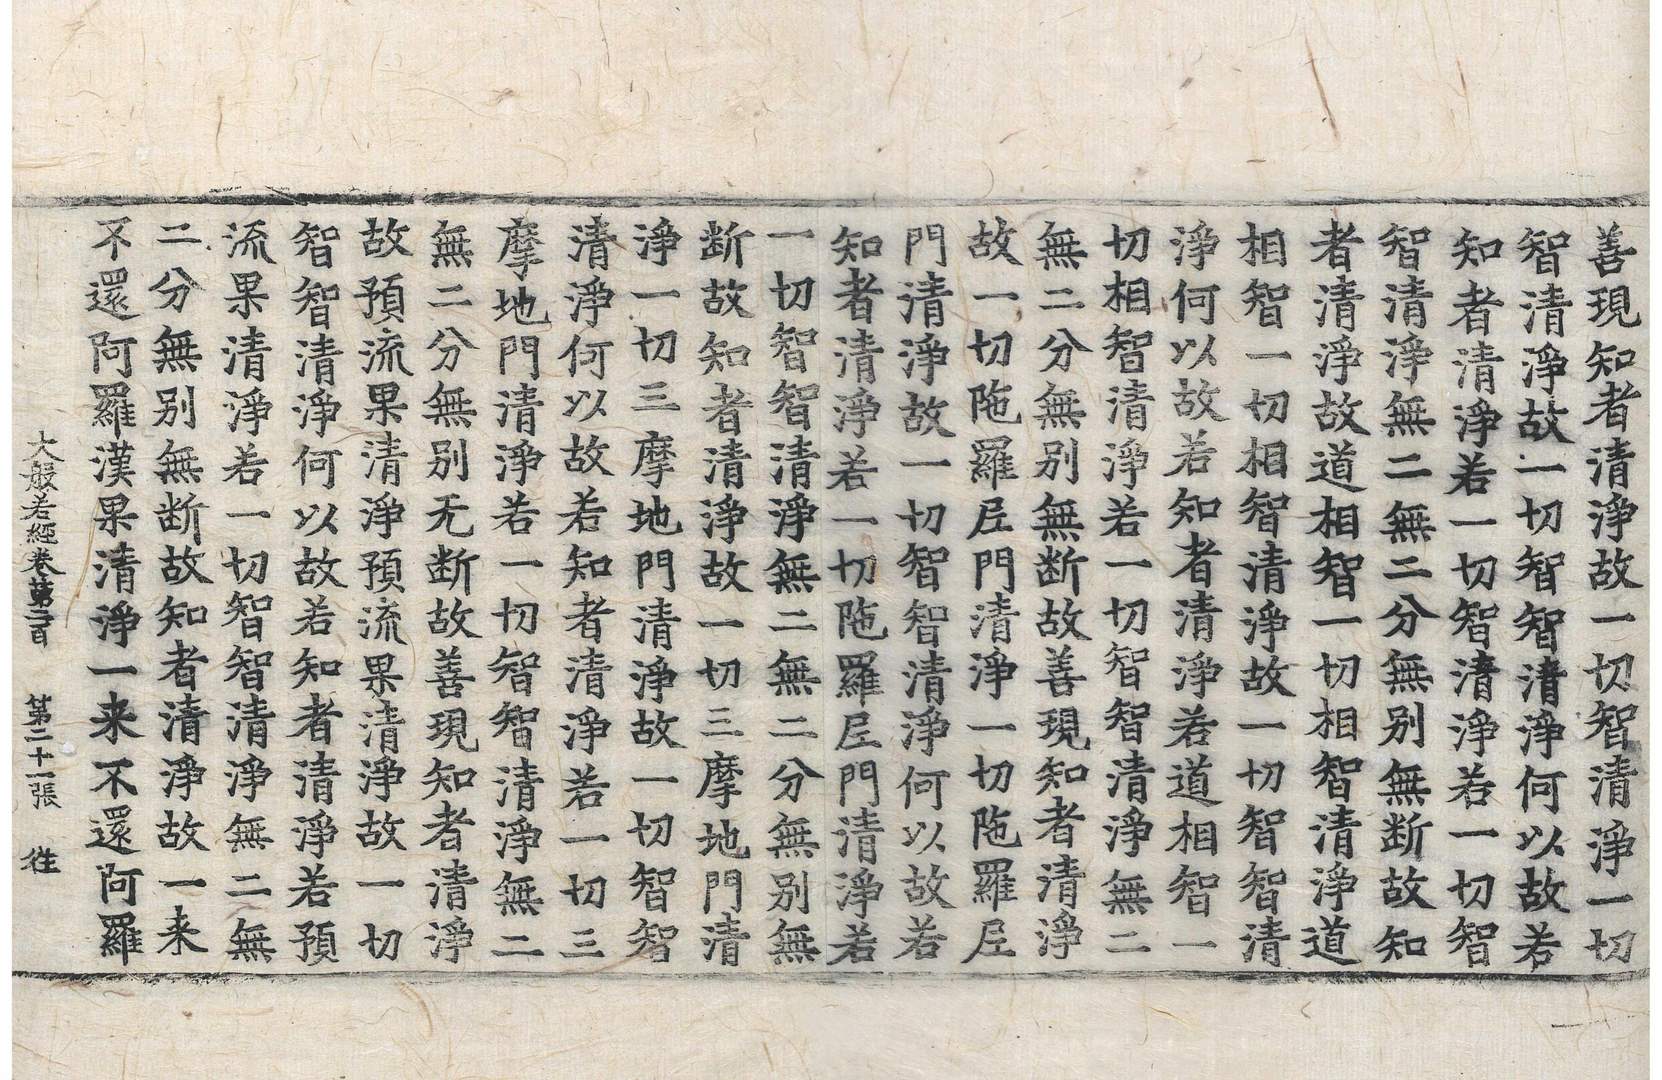 善現知者清淨故一切智清淨一切
智清淨故一切智智清淨何以故若
知者清淨若一切智清淨若一切智
智清淨無二無二分無別無断故知
者清淨故道相智一切相智清淨道
相智一切相智清淨故一切智智清
淨何以故若知者清淨若道相智一
切相智清淨若一切智智清淨無二
無二分無別無断故善現知者清淨
故一切陁羅尼門清淨一切陁羅尼
門清淨故一切智智清淨何以故若
知者清淨若一切陁羅尼門清淨若
一切智智清淨無二無二分無別無
断故知者清淨故一切三摩地門清
淨一切三摩地門清淨故一切智智
清淨何以故若知者清淨若一切三
摩地門清淨若一切智智清淨無二
無二分無別无断故善現知者清淨
故預流果清淨預流果清淨故一切
智智清淨何以故若知者清淨若預
流果清淨若一切智智清淨無二無
二分無別無断故知者清淨故一来
不還阿羅漢果清淨一来不還阿羅
大般若經卷第二百 第二十一張 往